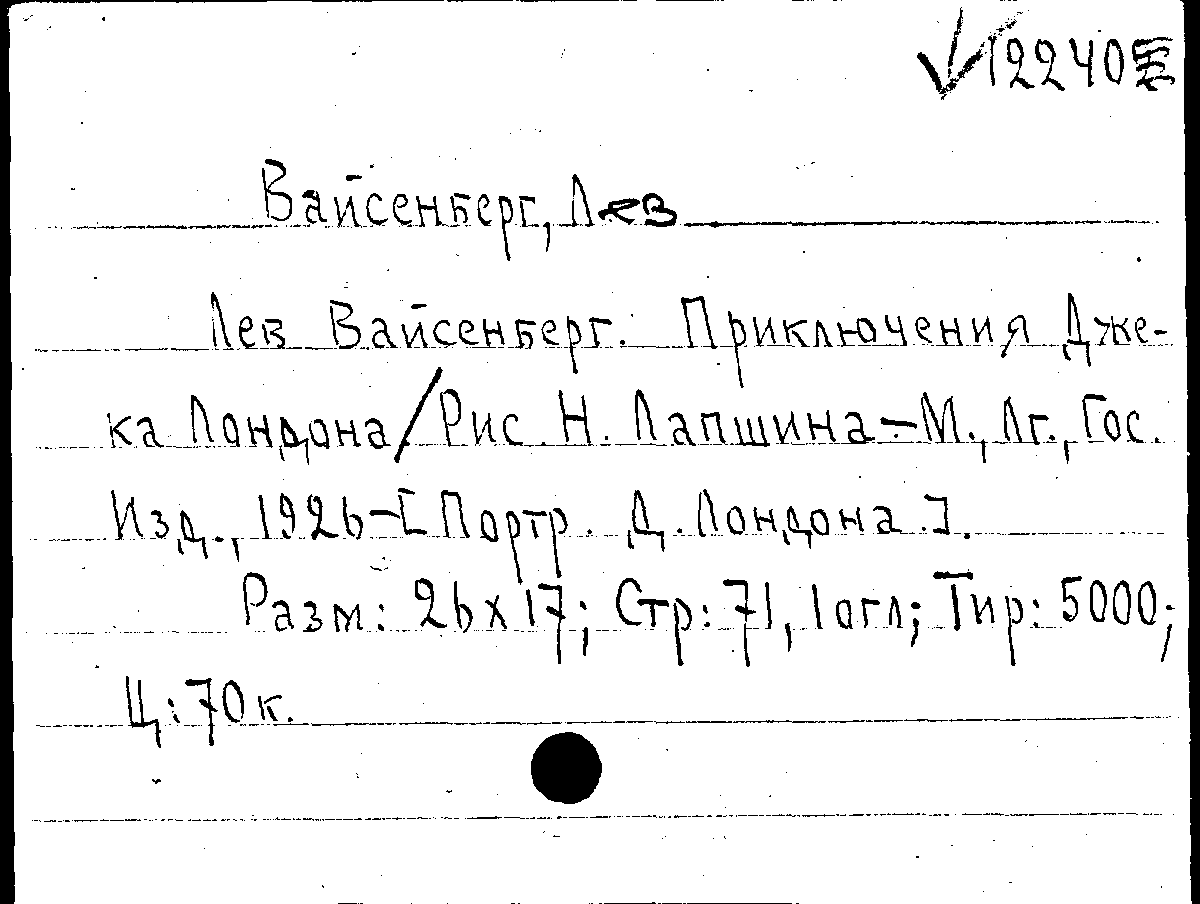 12240
Вайсенберг, Лев
Лев Вайсенберг. Приключения Дже-
ка Лондона/Рис. Н. Лапшина-М., Лг., Гос.
Изд., 1926-[Портр. Д. Лондона.].
Разм: 26х17; Стр: 71, 1 огл; Тир: 5000;
Ц: 70 к.